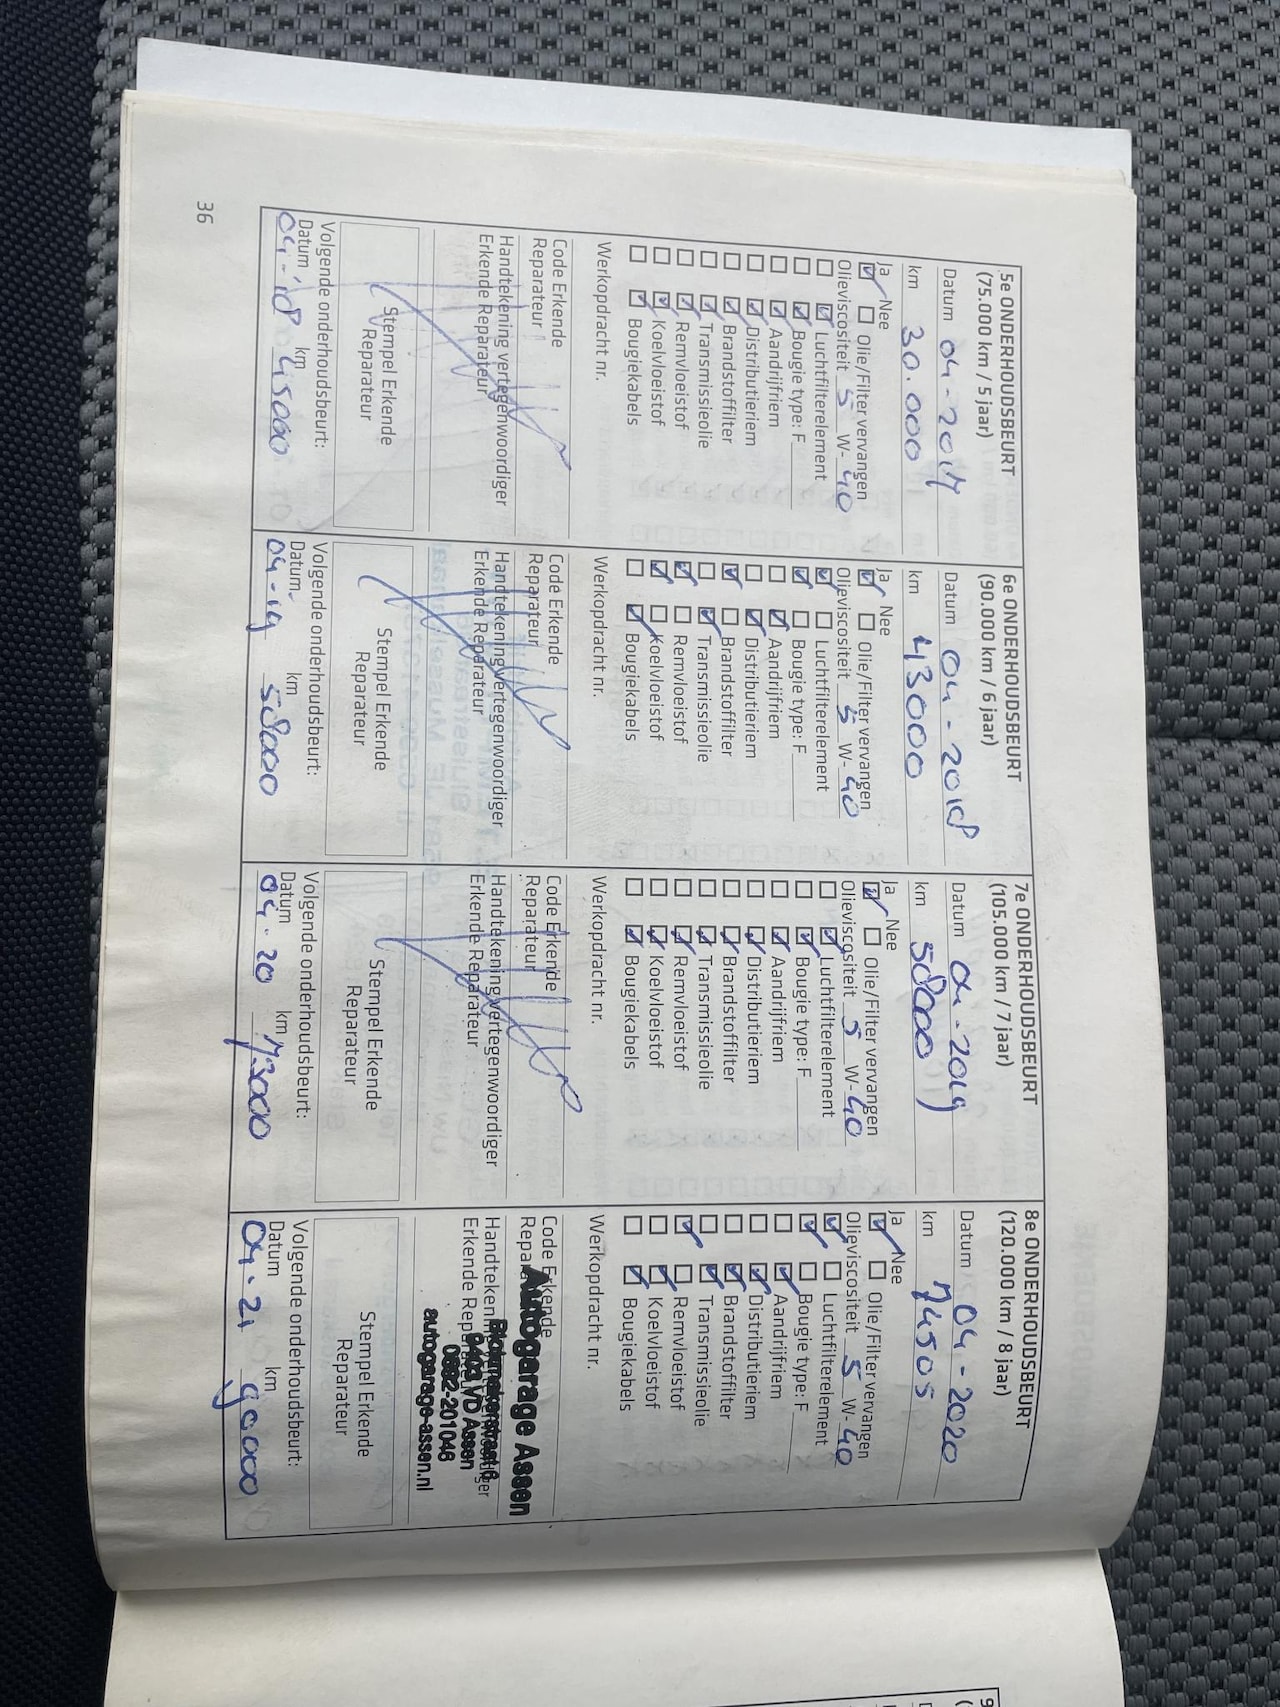 5e ONDERHOUDSBEURT
(75.000 km / 5 jaar)
Datum 04-2017
km 30.000
Ja Nee
Olie/Filter vervangen
Olieviscositeit 5 W-40
Luchtfilterelement
Bougie type: F
Aandrijfriem
Distributieriem
Brandstoffilter
Transmissieolie
Remvloeistof
Koelvloeistof
Bougiekabels
Werkopdracht nr.
Code Erkende
Reparateur
Handtekening vertegenwoordiger
Erkende Reparateur
Stempel Erkende
Reparateur
Volgende onderhoudsbeurt:
Datum km
04-'18 45000
6e ONDERHOUDSBEURT
(90.000 km / 6 jaar)
Datum 04-2018
km 43000
Ja Nee
Olie/Filter vervangen
Olieviscositeit 5 W-40
Luchtfilterelement
Bougie type: F
Aandrijfriem
Distributieriem
Brandstoffilter
Transmissieolie
Remvloeistof
Koelvloeistof
Bougiekabels
Werkopdracht nr.
Code Erkende
Reparateur
Handtekening vertegenwoordiger
Erkende Reparateur
Stempel Erkende
Reparateur
Volgende onderhoudsbeurt:
Datum km
04-19 58000
7e ONDERHOUDSBEURT
(105.000 km / 7 jaar)
Datum 04-2019
km 58000
Ja Nee
Olie/Filter vervangen
Olieviscositeit 5 W-40
Luchtfilterelement
Bougie type: F
Aandrijfriem
Distributieriem
Brandstoffilter
Transmissieolie
Remvloeistof
Koelvloeistof
Bougiekabels
Werkopdracht nr.
Code Erkende
Reparateur
Handtekening vertegenwoordiger
Erkende Reparateur
Stempel Erkende
Reparateur
Volgende onderhoudsbeurt:
Datum km
04-20 73000
8e ONDERHOUDSBEURT
(120.000 km / 8 jaar)
Datum 04-2020
km 74505
Ja Nee
Olie/Filter vervangen
Olieviscositeit 5 W-40
Luchtfilterelement
Bougie type: F
Aandrijfriem
Distributieriem
Brandstoffilter
Transmissieolie
Remvloeistof
Koelvloeistof
Bougiekabels
Werkopdracht nr.
Code Erkende
Autogarage Assen
9403 VD Assen
0592-201046
autogarage-assen.nl
Stempel Erkende
Reparateur
Volgende onderhoudsbeurt:
Datum km
04-21 90000
36